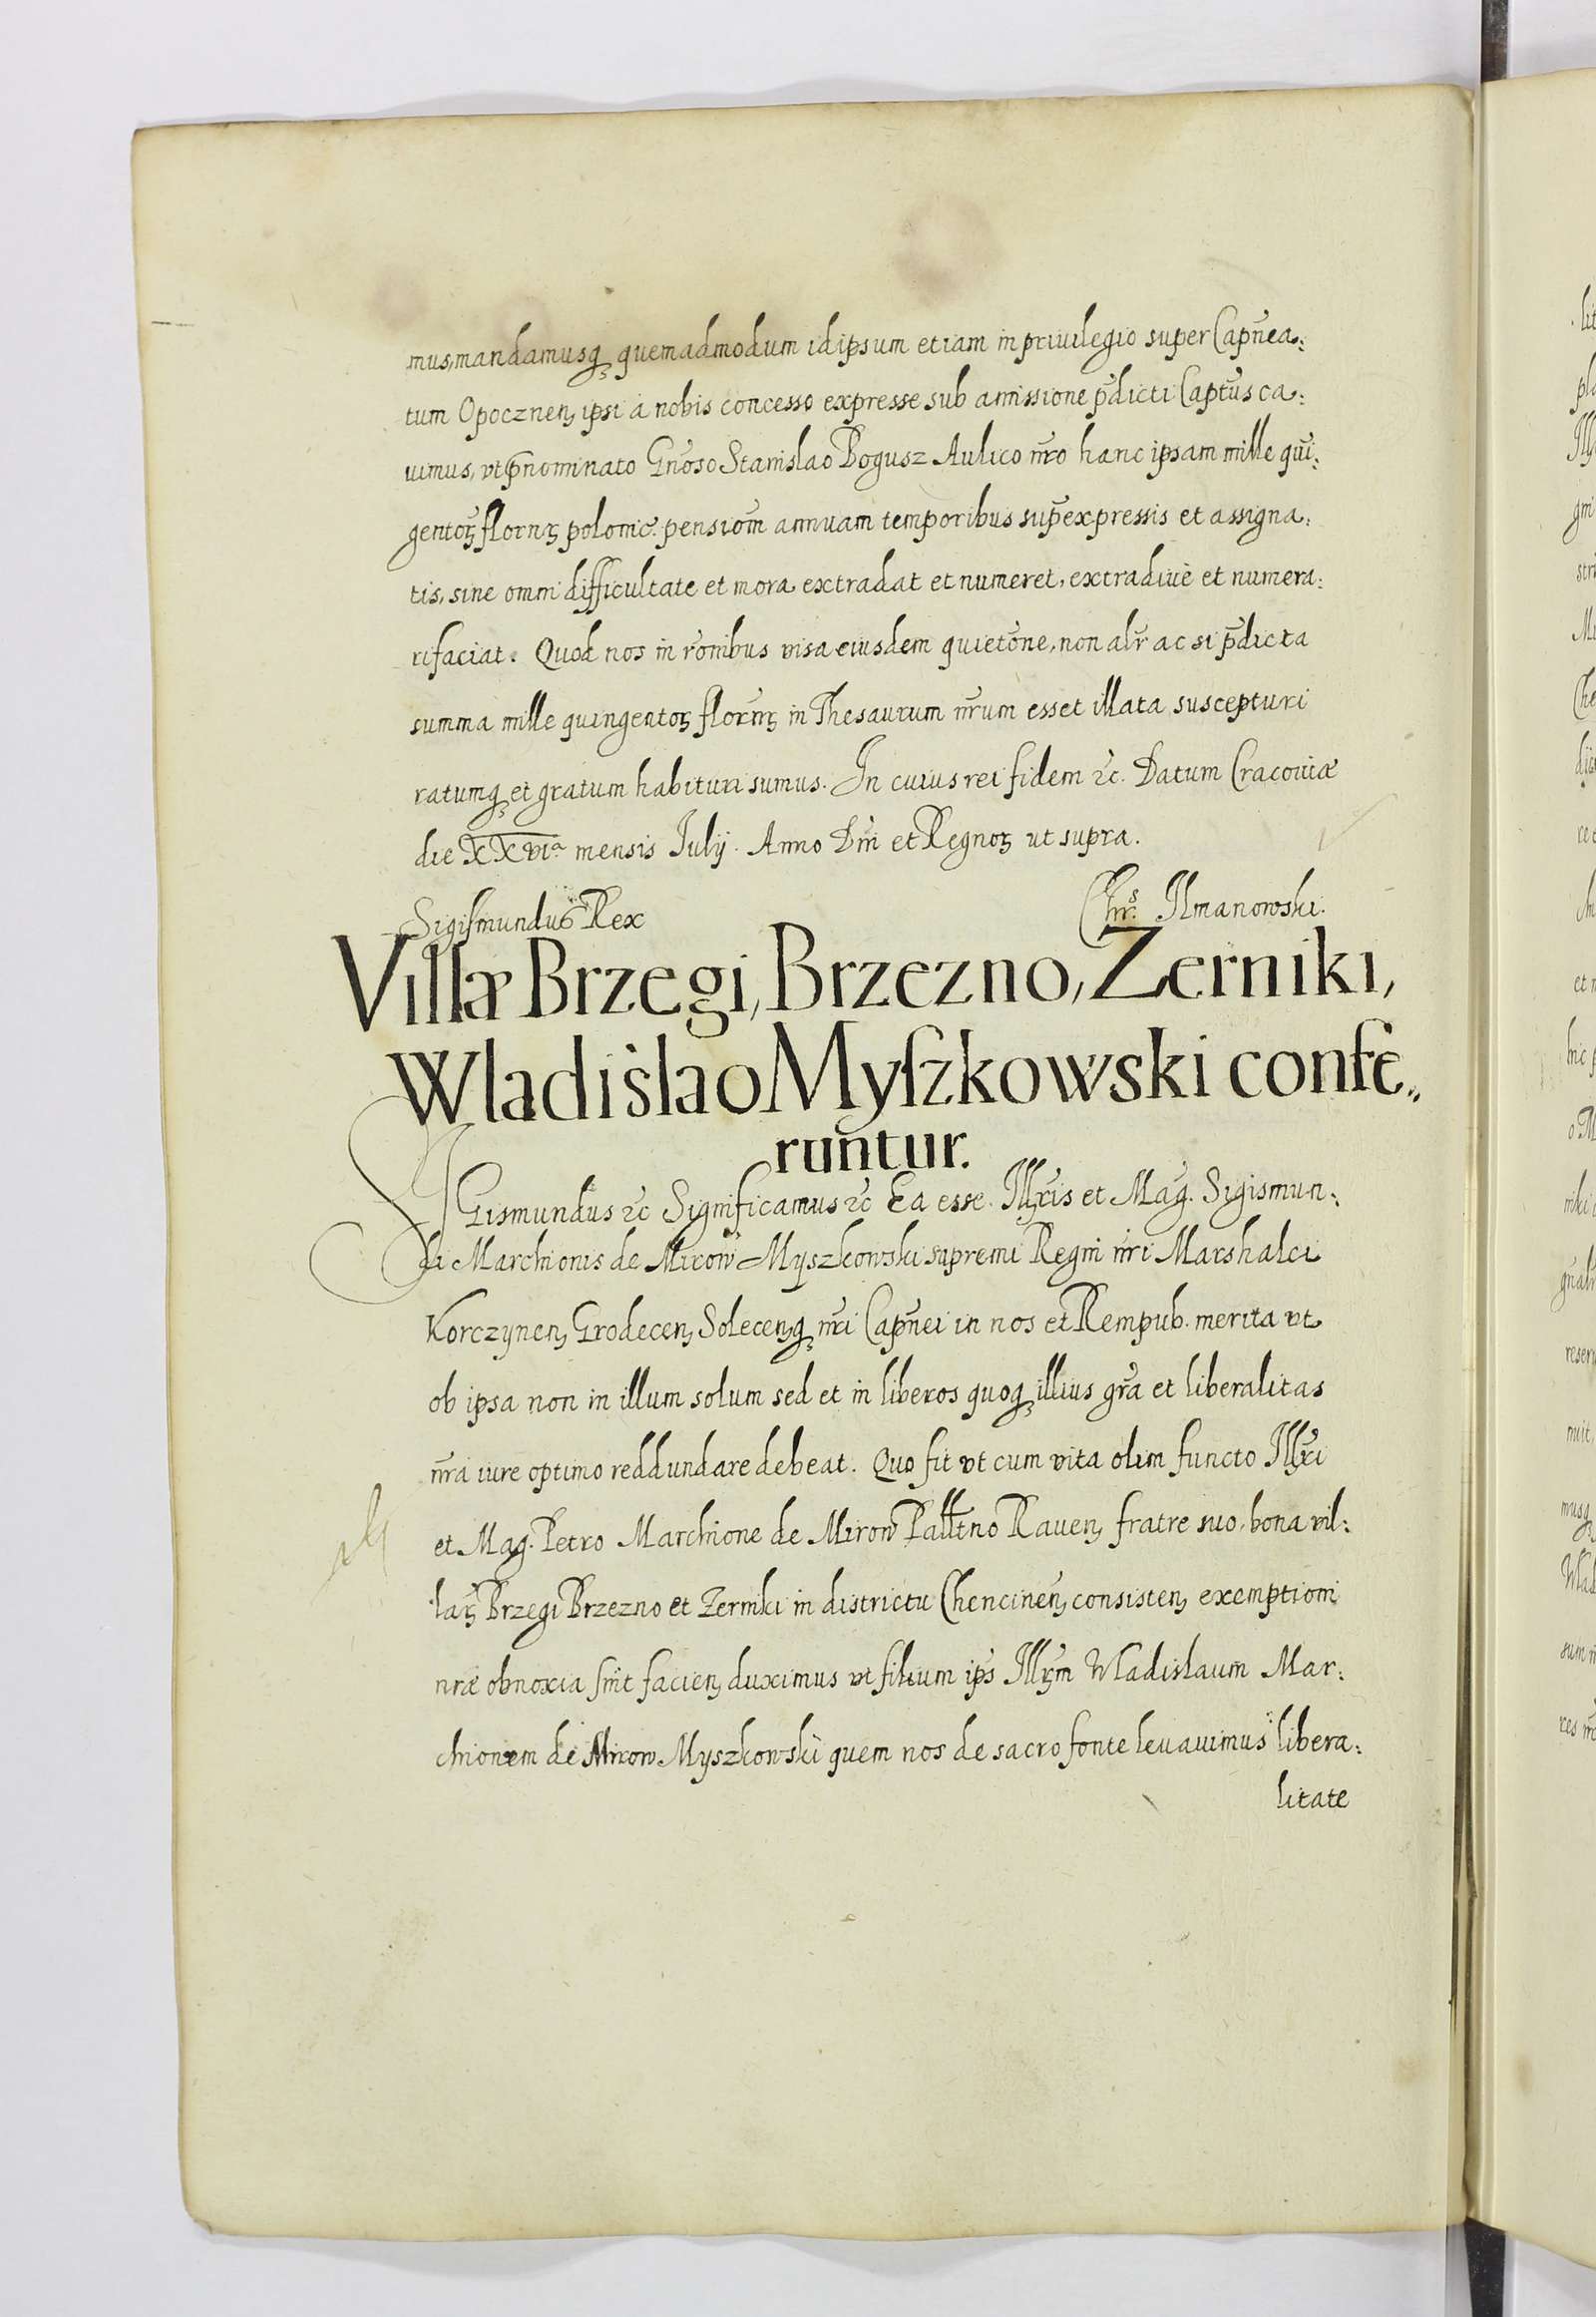 mus, mandamusqꝫ quemadmodum idipsum etiam in priuilegio super Capñea:
tum Opocznenꝫ ipsi à nobis concesso expresse sub amissione p̃dicti Captũs ca:
uimus, vt p̃nominato Gnõso Stanislao Bogusz Aulico nr̃o hanc ipsam mille qũi:
gentoꝝ flornꝝ polonic̃. pensiom̃ annuam temporibus sup̃expressis et assigna:
tis, sine omni difficultate et mora extradat et numeret, extradiuè et numera:
ri faciat. Quod nos in rõnibus visa eiusdem quietõne, non alr̃ ac si p̃dicta
summa mille quingentoꝝ florñꝝ in Thesaurum nr̃um esset illata suscepturi
ratumqꝫ et gratum habituri sumus. In cuius rei fidem ꝛc̃. Datum Cracouiæ
die XXVIᵃ mensis Iulij. Anno Dñi et Regnoꝝ ut supra.
Sigismundus Rex Chrˢ. Ilmanowski.
Villæ Brzegi, Brzezno, Zerniki,
Wladislao Myſzkowski confe„
runtur.
SIGismundus ꝛc̃ Significamus ꝛc̃ Ea esse Illr̃is et Mag̃. Sigismun:
di Marchionis de Mirow Myszkowski supremi Regni nr̃i Marshalci
Korczynenꝫ Grodecenꝫ Solecenꝫqꝫ nr̃i Capñei in nos et Rempub. merita vt
ob ipsa non in illum solum sed et in liberos quoqꝫ illius gr̃a et liberalitas
nr̃a iure optimo reddundare debeat. Quo fit vt cum vita olim functo Illr̃i
et Mag. Petro Marchione de Mirow Palltño Rauenꝫ fratre suo, bona vil:
laꝝ Brzegi Brzezno et Zerniki in districtu Chencinenꝫ consistenꝫ exemptioni
nræ obnoxia sint facienꝫ duximus vt filium ips̃ Illr̃m Wladislaum Mar:
chionem de Mirow Myszkowski quem nos de sacro fonte leuauimus libera:
litate